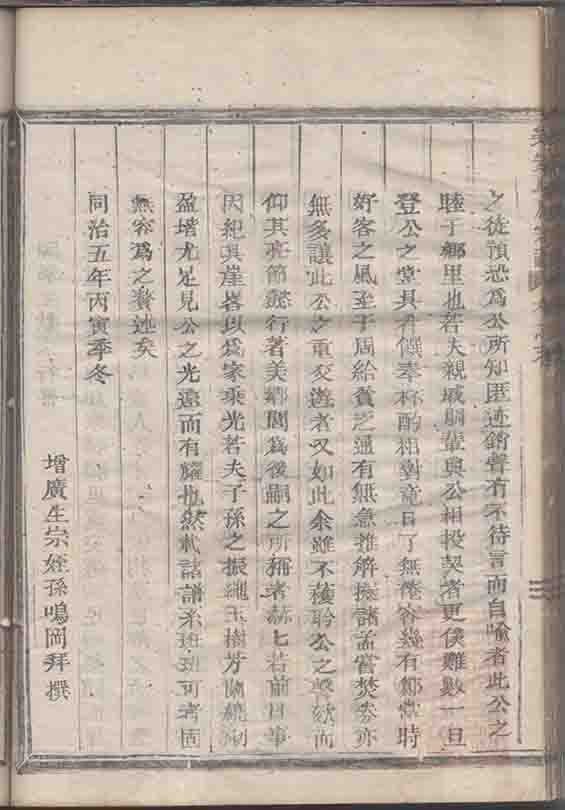 之徒預恐為公所知匿迹銷聲有不待言而自喻者此公之
睦于鄉里也若夫親戚朋輩與公相投契者更僕難數一旦
登公之堂具者饌奉杯酌相對竟日了無倦容幾有鄭當時
好客之風至于周給貧乏通有無急推解擬諸孟嘗焚券亦
無多讓此公之重交遊者又如此余雖不獲聆公之謦欬而
仰其亮節懿行著美鄉閭為後嗣之所稱者赫七若前日事
因紀其崖畧以為家乘光若夫子孫之振繩玉樹芳蘭繞砌
盈堦尤足見公之光遠而有耀也然載諸譜系班班可考固
無容為之贅述矣
同治五年丙寅季冬
增廣生宗姪孫鳴岡拜撰